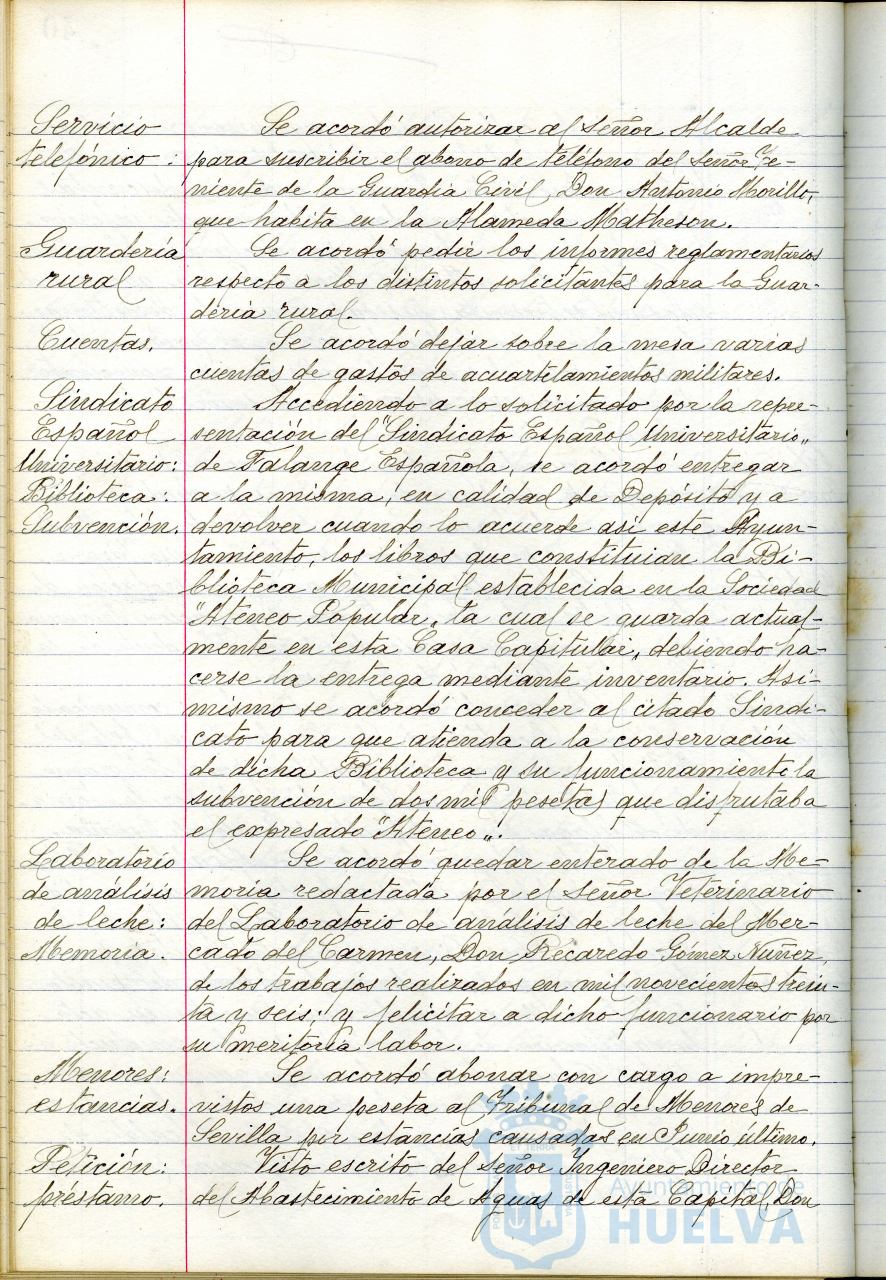 Servicio
telefónico:
Se acordó autorizar al señor Alcalde
para suscribir el abono de teléfono del señor Te-
niente de la Guardia Civil, Don Antonio Morillo,
que habita en la Alameda Matheson.
Guardería
rural
Se acordó pedir los informes reglamentarios
respecto a los distintos solicitantes para la Guar-
dería rural.
Cuentas.
Se acordó dejar sobre la mesa varias
cuentas de gastos de acuartelamientos militares.
Sindicato
Español
Universitario:
Biblioteca:
Subvención.
Accediendo a lo solicitado por la repre-
sentación del "Sindicato Español Universitario"
de Falange Española, se acordó entregar
a la misma, en calidad de Depósito y a
devolver cuando lo acuerde así este Ayun-
tamiento, los libros que constituian la Bi-
blioteca Municipal establecida en la Sociedad
"Ateneo Popular", la cual se guarda actual-
mente en esta Casa Capitular, debiendo ha-
cerse la entrega mediante inventario. Asi-
mismo se acordó conceder al citado Sindi-
cato para que atienda a la conservación
de dicha Biblioteca y su funcionamiento la
subvención de dos mil pesetas que disfrutaba
el expresado "Ateneo".
Laboratorio
de análisis
de leche:
Memoria.
Se acordó quedar enterado de la Me-
moria redactada por el señor Veterinario
del Laboratorio de análisis de leche del Mer-
cado del Carmen, Don Recaredo Gómez Núñez,
de los trabajos realizados en mil novecientos trein-
ta y seis; y felicitar a dicho funcionario por
su meritoria labor.
Menores:
estancias.
Se acordó abonar con cargo a impre-
vistos una peseta al Tribunal de Menores de
Sevilla por estancias causadas en Junio último.
Petición:
préstamo.
Visto escrito del señor Ingeniero Director
del Abastecimiento de Aguas de esta Capital, Don
Ayuntamiento de
HUELVA